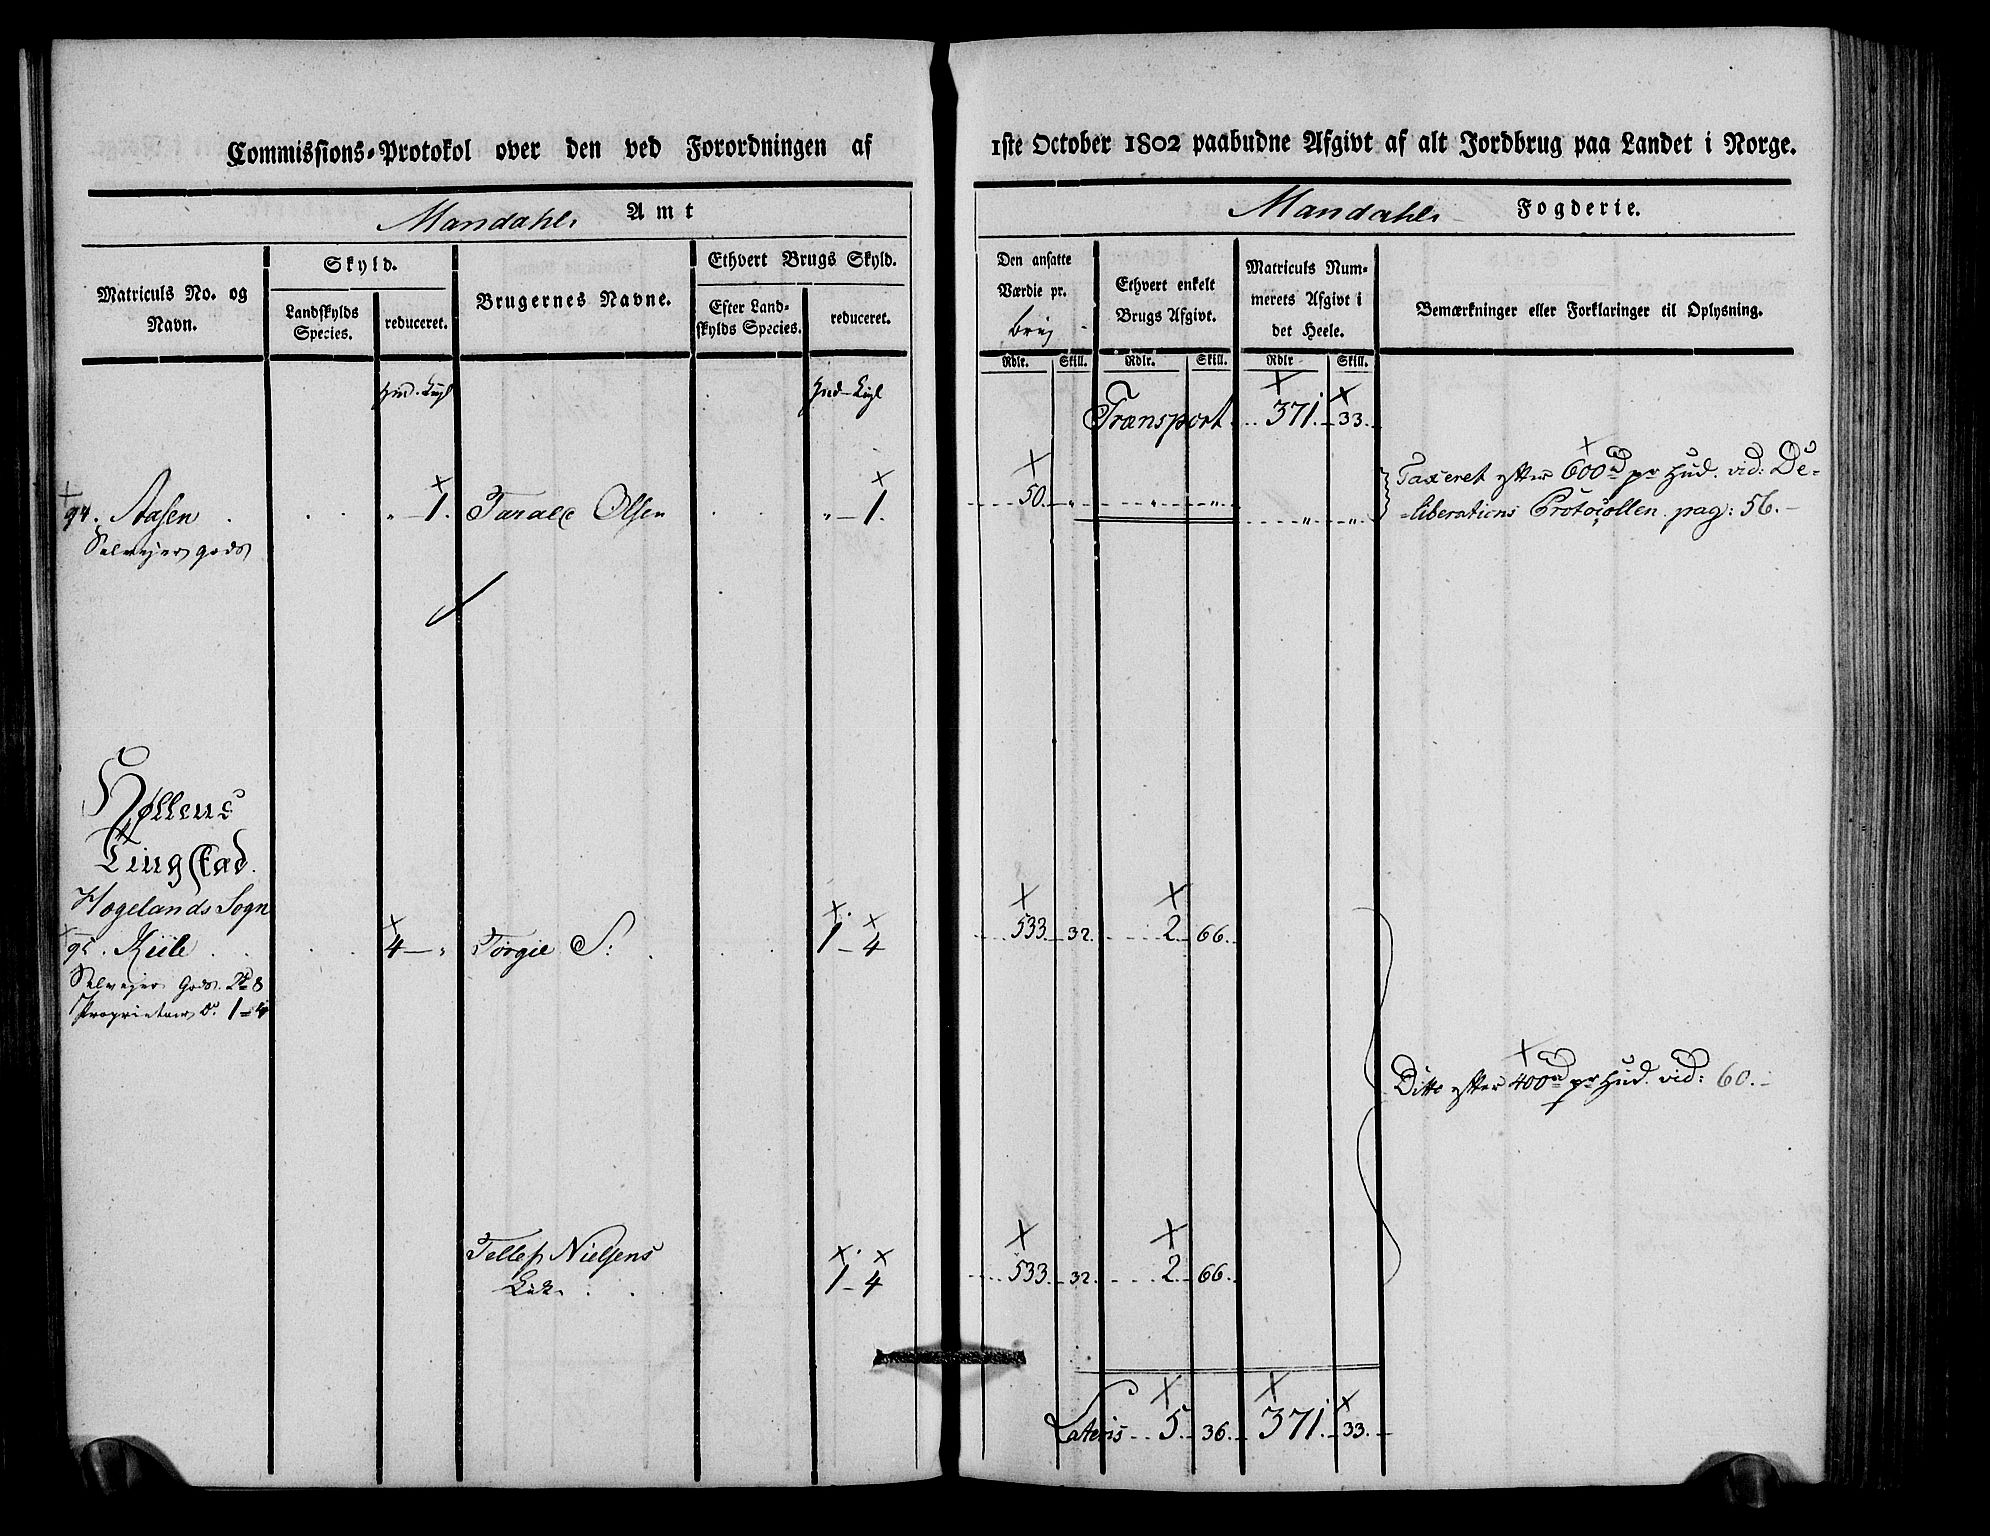 Commissions-Protokol over den ved Forordningen af
1ste October 1802 paabudne Afgivt af alt Jordbrug paa Landet i Norge.
Mandahls Amt
Mandahls Fogderie.
Matriculs No. og Navn.
Skyld.
Landskylds Species.
reduceret.
Brugernes Navne.
Ethvert Brugs Skyld.
Efter Landskylds Species.
reduceret.
Den ansatte Værdie pr. brug
Ethvert enkelt Brugs Afgivt.
Matriculs Nummerets Afgivt i det Heele.
Bemærkninger eller Forklaringer til Oplysning.
Rdlr. Skill. Rdlr. Skill. Rdlr Skill.
Transport 371. 33.
94. Aasen . . . „ 1. Taralc Olsen . . „ 1. 50. „ „ „ „ „ Taxeret efter 600rd pr Hud. vid: De-
Selvejer gods
liberations Protocollen pag: 56.
Hollens
Tingstad.
Hægelands Sogn
95. Kiile . . . 4 „ Torgie S: . . 1 4 533. 32. 2. 66.
Selvejer Gods. 2 8
Proprietair Do. 1 4
Ditto efter 400rd pr Hud. vid: 60.
Tellef Nielsens
1 4 533. 32. 2. 66.
Lateris 5. 36. 371. 33.